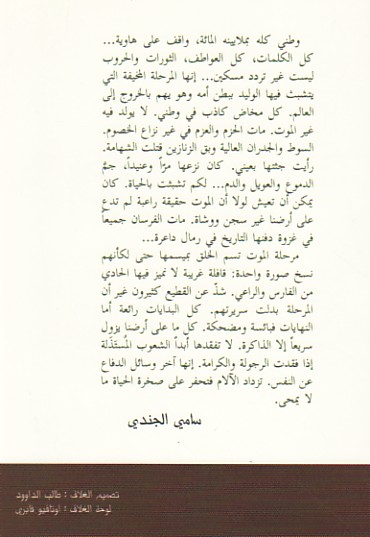 وطني كله بملايينه المائة، واقف على هاوية...
كل الكلمات، كل العواطف، الثورات والحروب
ليست غير تردد مسكين... إنها المرحلة المخيفة التي
يتشبث فيها الوليد ببطن أمه وهو يهم بالخروج إلى
العالم. كل مخاض كاذب في وطني. لا يولد فيه
غير الموت. مات الحزم والعزم في غير نزاع الخصوم.
السوط والجدران العالية وبق الزنازين قتلت الشهامة.
رأيت جثتها بعيني. كان نزعها مرّاً وعنيداً، جمّ
الدموع والعويل والدم... لكم تشبثت بالحياة. كان
يمكن أن تعيش لولا أن الموت حقيقة راعبة لم تدع
على أرضنا غير سجن ووشاة. مات الفرسان جميعاً
في غزوة دفنها التاريخ في رمال داعرة...
مرحلة الموت تسم الخلق بميسمها حتى لكأنهم
نسخ صورة واحدة: قافلة غريبة لا تميز فيها الحادي
من الفارس والراعي. شذّ عن القطيع كثيرون غير أن
المرحلة بدلت سريرتهم. كل البدايات رائعة أما
النهايات فبائسة ومضحكة. كل ما على أرضنا يزول
سريعاً إلا الذاكرة. لا تفقدها أبداً الشعوب المستَذَلة
إذا فقدت الرجولة والكرامة. إنها آخر وسائل الدفاع
عن النفس. تزداد الآلام فتحفر على صخرة الحياة ما
لا يمحى.
سامي الجندي
تصميم الغلاف : طالب الداوود
لوحة الغلاف : اوتافيو فابري